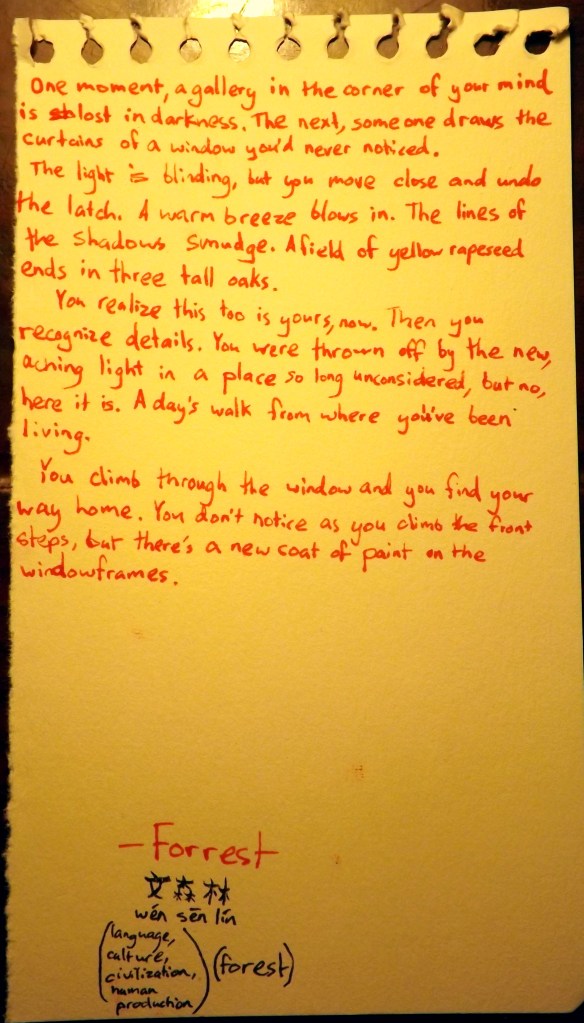 One moment, a gallery in the corner of your mind
is lost in darkness. The next, someone draws the
curtains of a window you'd never noticed.
The light is blinding, but you move close and undo
the latch. A warm breeze blows in. The lines of
the shadows smudge. A field of yellow rapeseed
ends in three tall oaks.
You realize this too is yours, now. Then you
recognize details. You were thrown off by the new,
aching light in a place so long unconsidered, but no,
here it is. A day's walk from where you've been
living.
You climb through the window and you find your
way home. You don't notice as you climb the front
steps, but there's a new coat of paint on the
windowframes.
-Forrest
文森林
wén sēn lín
(language,
culture,
civilization,
human
production)
(forest)